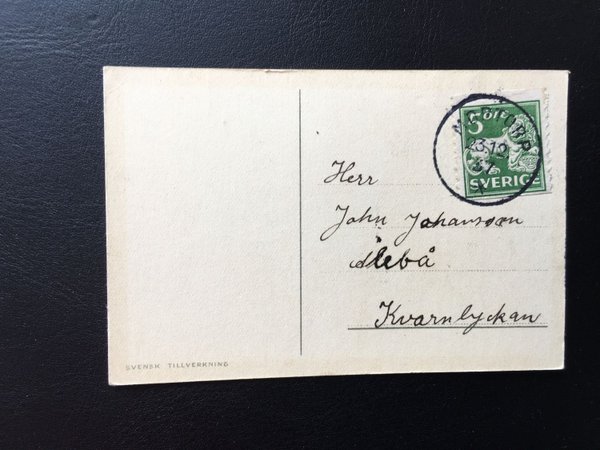 5 ÖRE
SVERIGE
23.12
37
Herr
John Johansson
Alebå
Kvarnlyckan
SVENSK TILLVERKNING